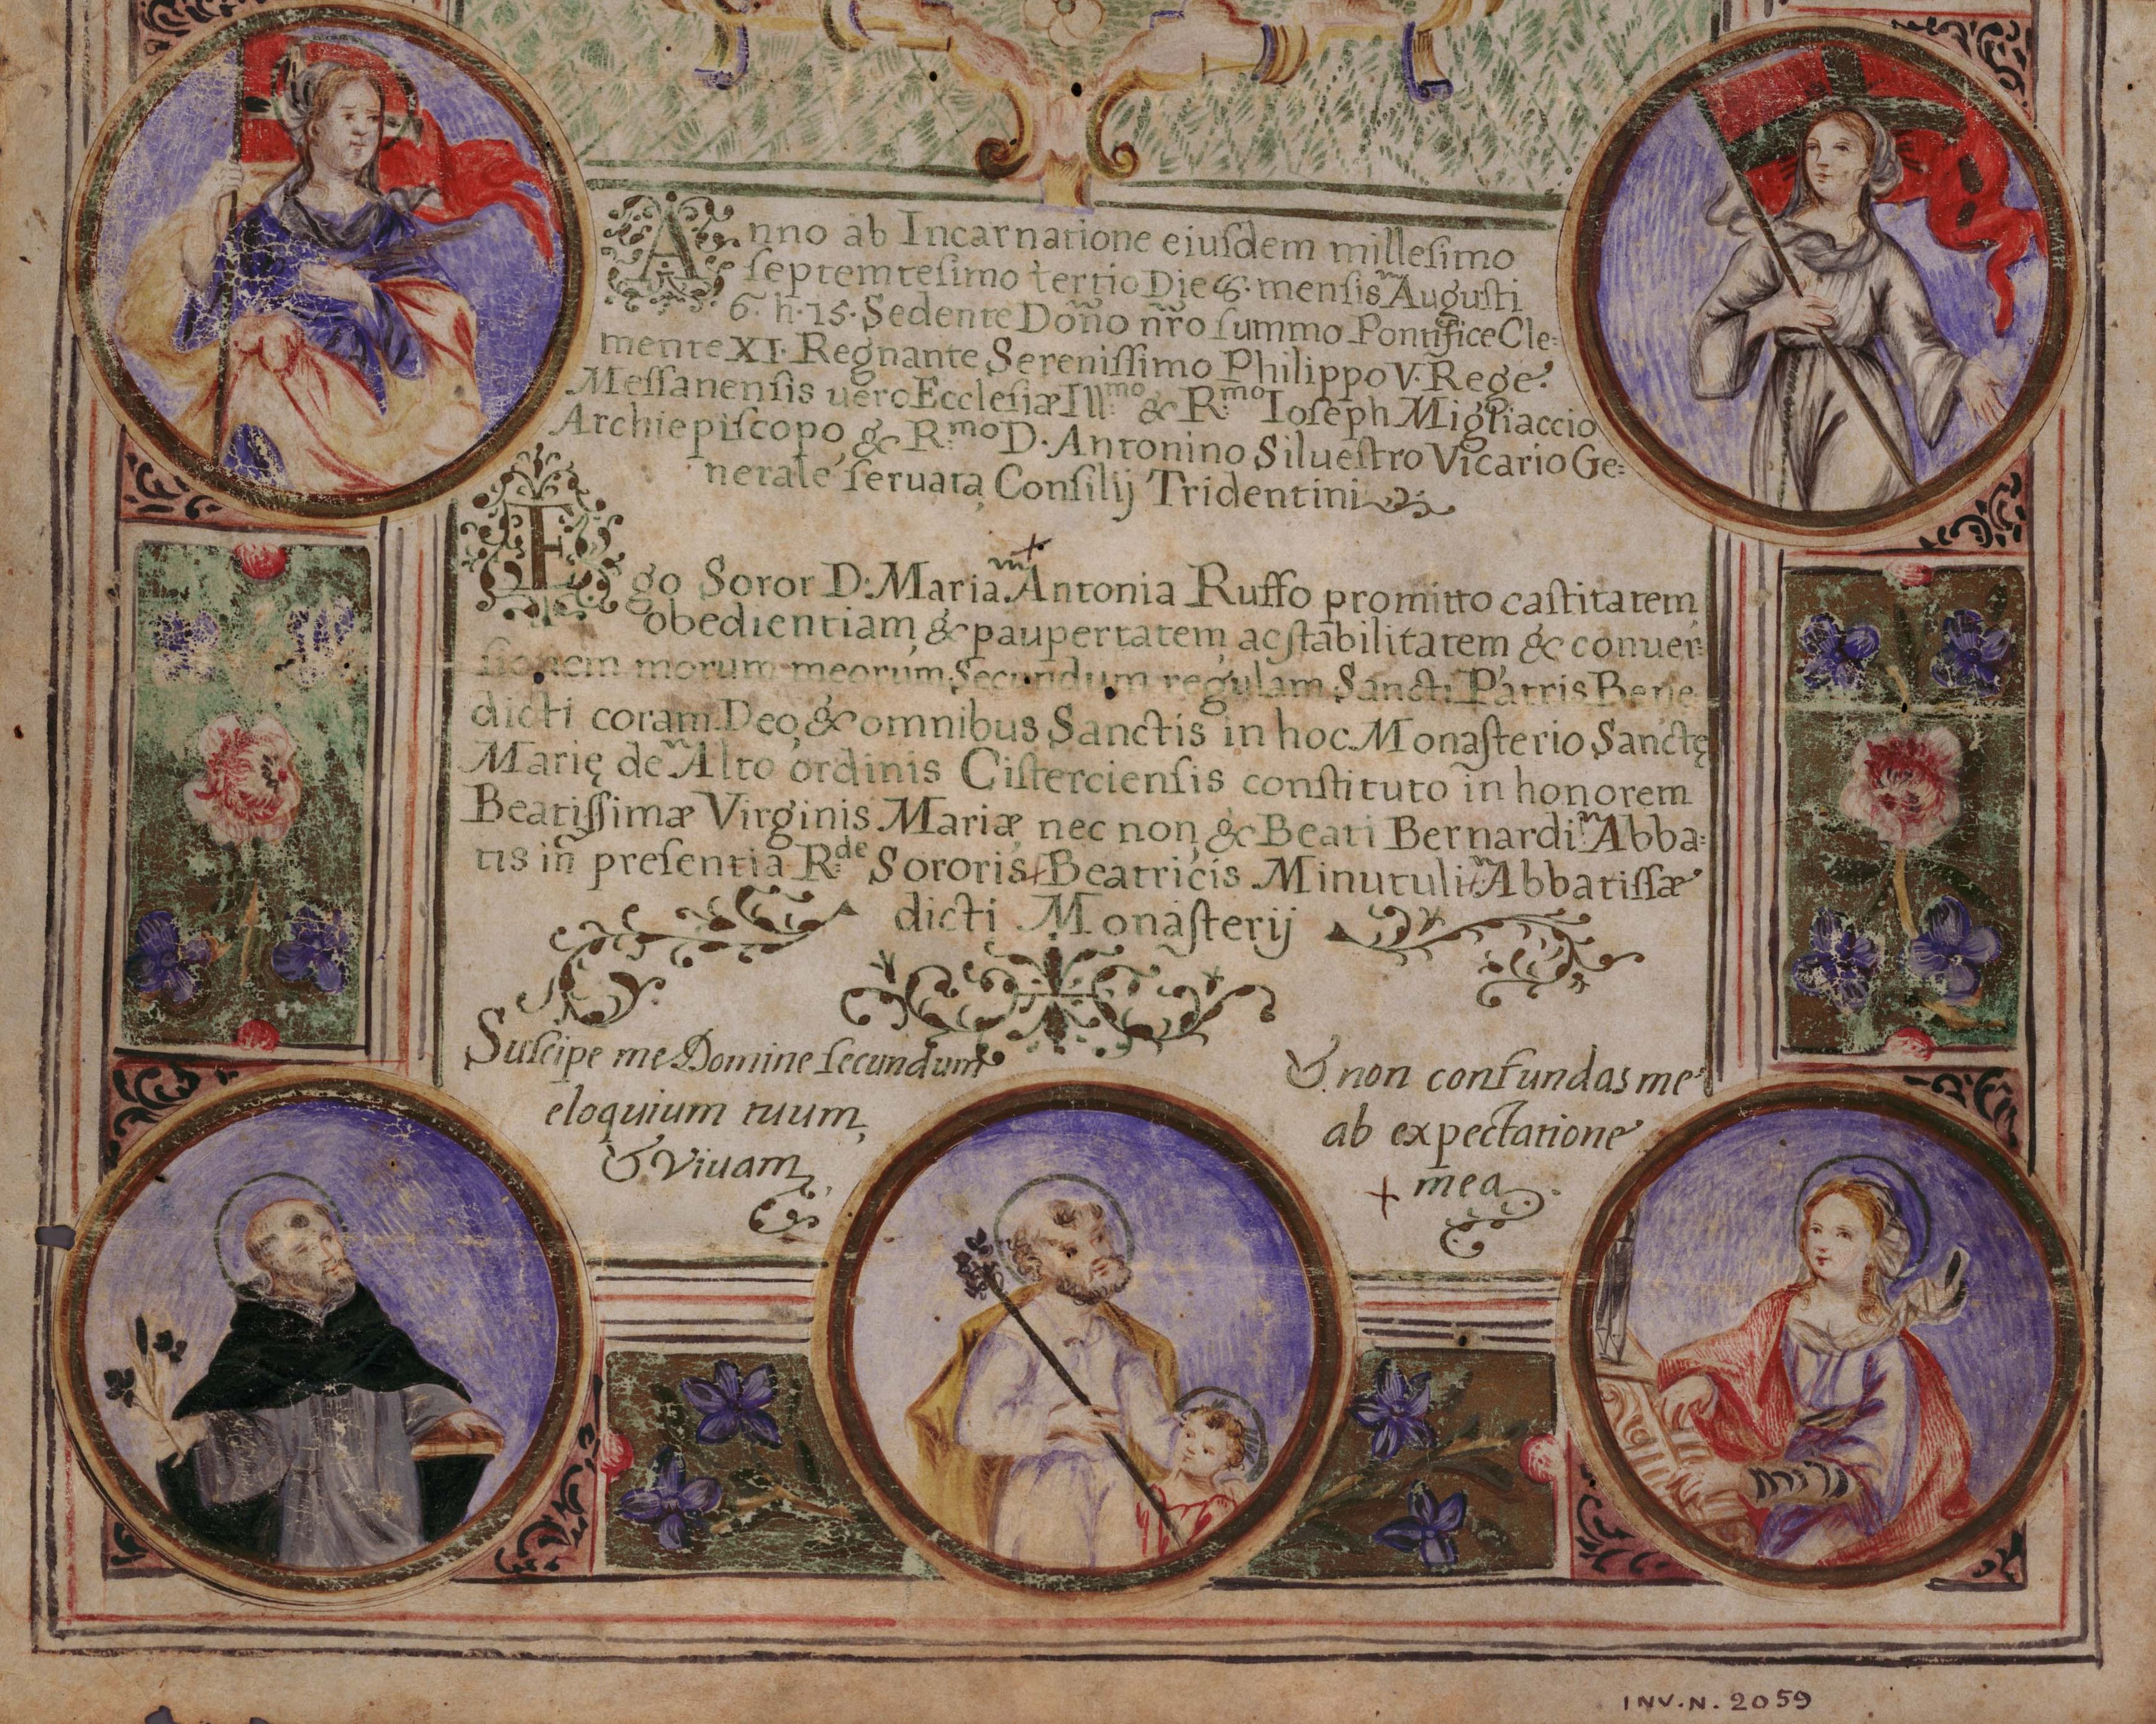 Anno ab Incarnatione eiusdem millesimo
septemtesimo tertio Die 8. mensis Augusti
6. h. 15. Sedente Dono nro summo Pontifice Cle=
mente XI. Regnante Serenissimo Philippo V. Rege.
Messanensis uero Ecclesiæ Ill:mo & R:mo Ioseph Migliaccio
Archiepiscopo, & R:mo D. Antonino Siluestro Vicario Ge=
nerale seruata Consilij Tridentini
Ego Soror D: Maria Antonia Ruffo promitto castitatem,
obedientiam, & paupertatem, ac stabilitatem & conuer=
sionem morum meorum Secundum regulam Sancti Patris Bene
dicti coram Deo, & omnibus Sanctis in hoc Monasterio Sanctę
Marię de Alto ordinis Cisterciensis constituto in honorem
Beatissimæ Virginis Mariæ, nec non, & Beati Bernardi Abba=
tis in presentia R:de Sororis Beatricis Minutuli Abbatissæ
dicti Monasterij
Suscipe me Domine secundum
eloquium tuum,
& Viuam,
& non confundas me
ab expectatione
+ mea
INV. N. 2059